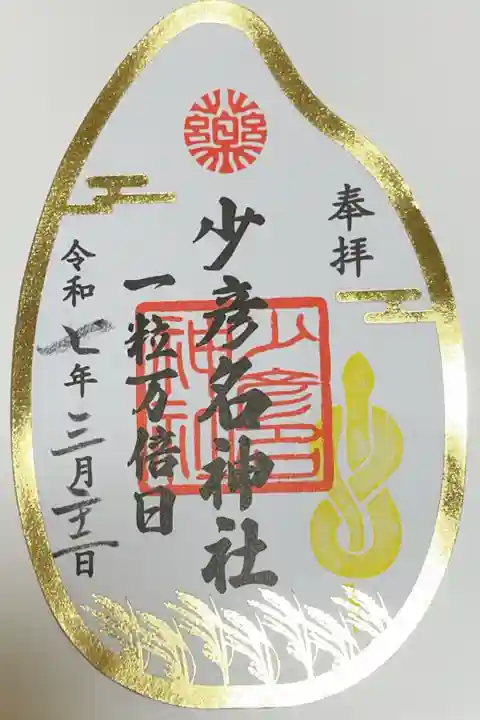 奉拝
薬
少彦名神社
一粒万倍日
令和七年三月二十二日